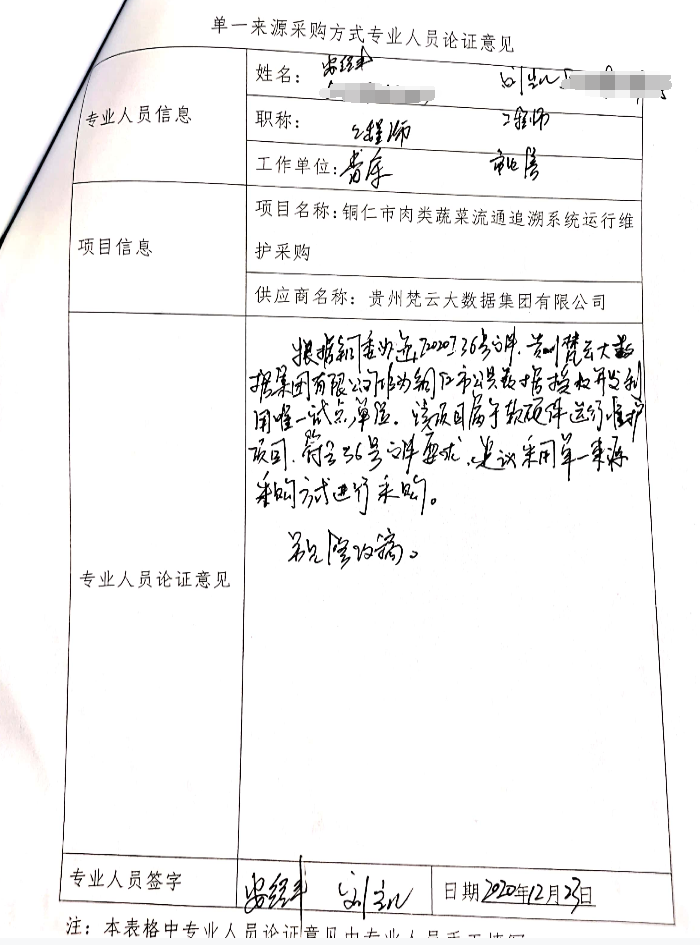 单一来源采购方式专业人员论证意见
专业人员信息
姓名：
职称：
工程师 工程师
工作单位：
项目信息
项目名称：铜仁市肉类蔬菜流通追溯系统运行维
护采购
供应商名称：贵州梵云大数据集团有限公司
专业人员论证意见
根据铜委办连[2020]36号文件，贵州梵云大数
据集团有限公司作为铜仁市公共数据授权开发利
用唯一试点单位，该项目属于软硬件运行维护
项目，符合36号文件要求，建议采用单一来源
采购方式进行采购。
专业人员签字
日期 2020年12月23日
注：本表格中专业人员论证意见由专业人员手工填写